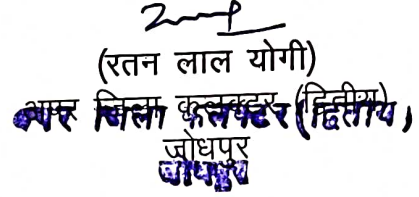 (रतन लाल योगी)
अपर जिला कलक्टर (द्वितीय)
अपर जिला कलक्टर (द्वितीय)
जोधपुर
जोधपुर